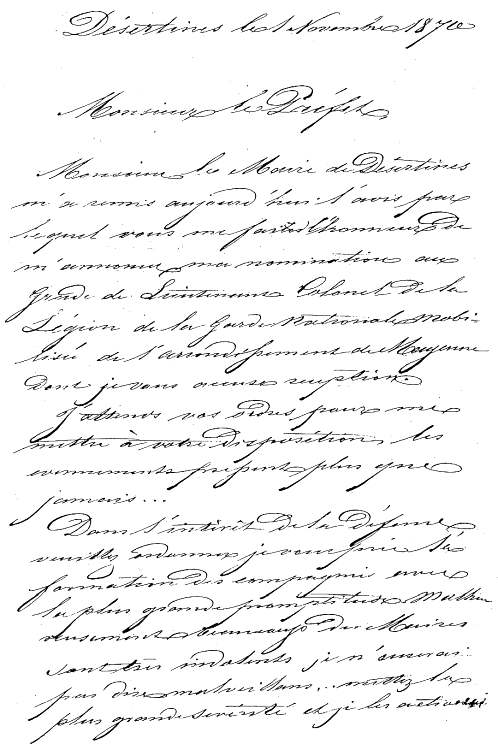 Désertines le 1 Novembre 1870
Monsieur le Préfet,
Monsieur le Maire de Désertines
m'a remis aujourd'hui l'avis par
lequel vous me faites l'honneur de
m'annoncer ma nomination au
Grade de Lieutenant Colonel de la
Légion de la Garde Nationale Mobi-
lisée de l'arrondissement de Mayenne
Dont je vous accuse reception.
J'attends vos ordres pour me
mettre à votre Disposition, les
evennements pressent plus que
jamais...
Dans l'intérêt de la Défense
veuillez ordonner je vous prie la
formation des compagnies avec
la plus grande promptitude Malheu
reusement beaucoup de Maires
sont tres indolents je n'oserai
pas dire malveillans... mettez la
plus grande sévérité et je les